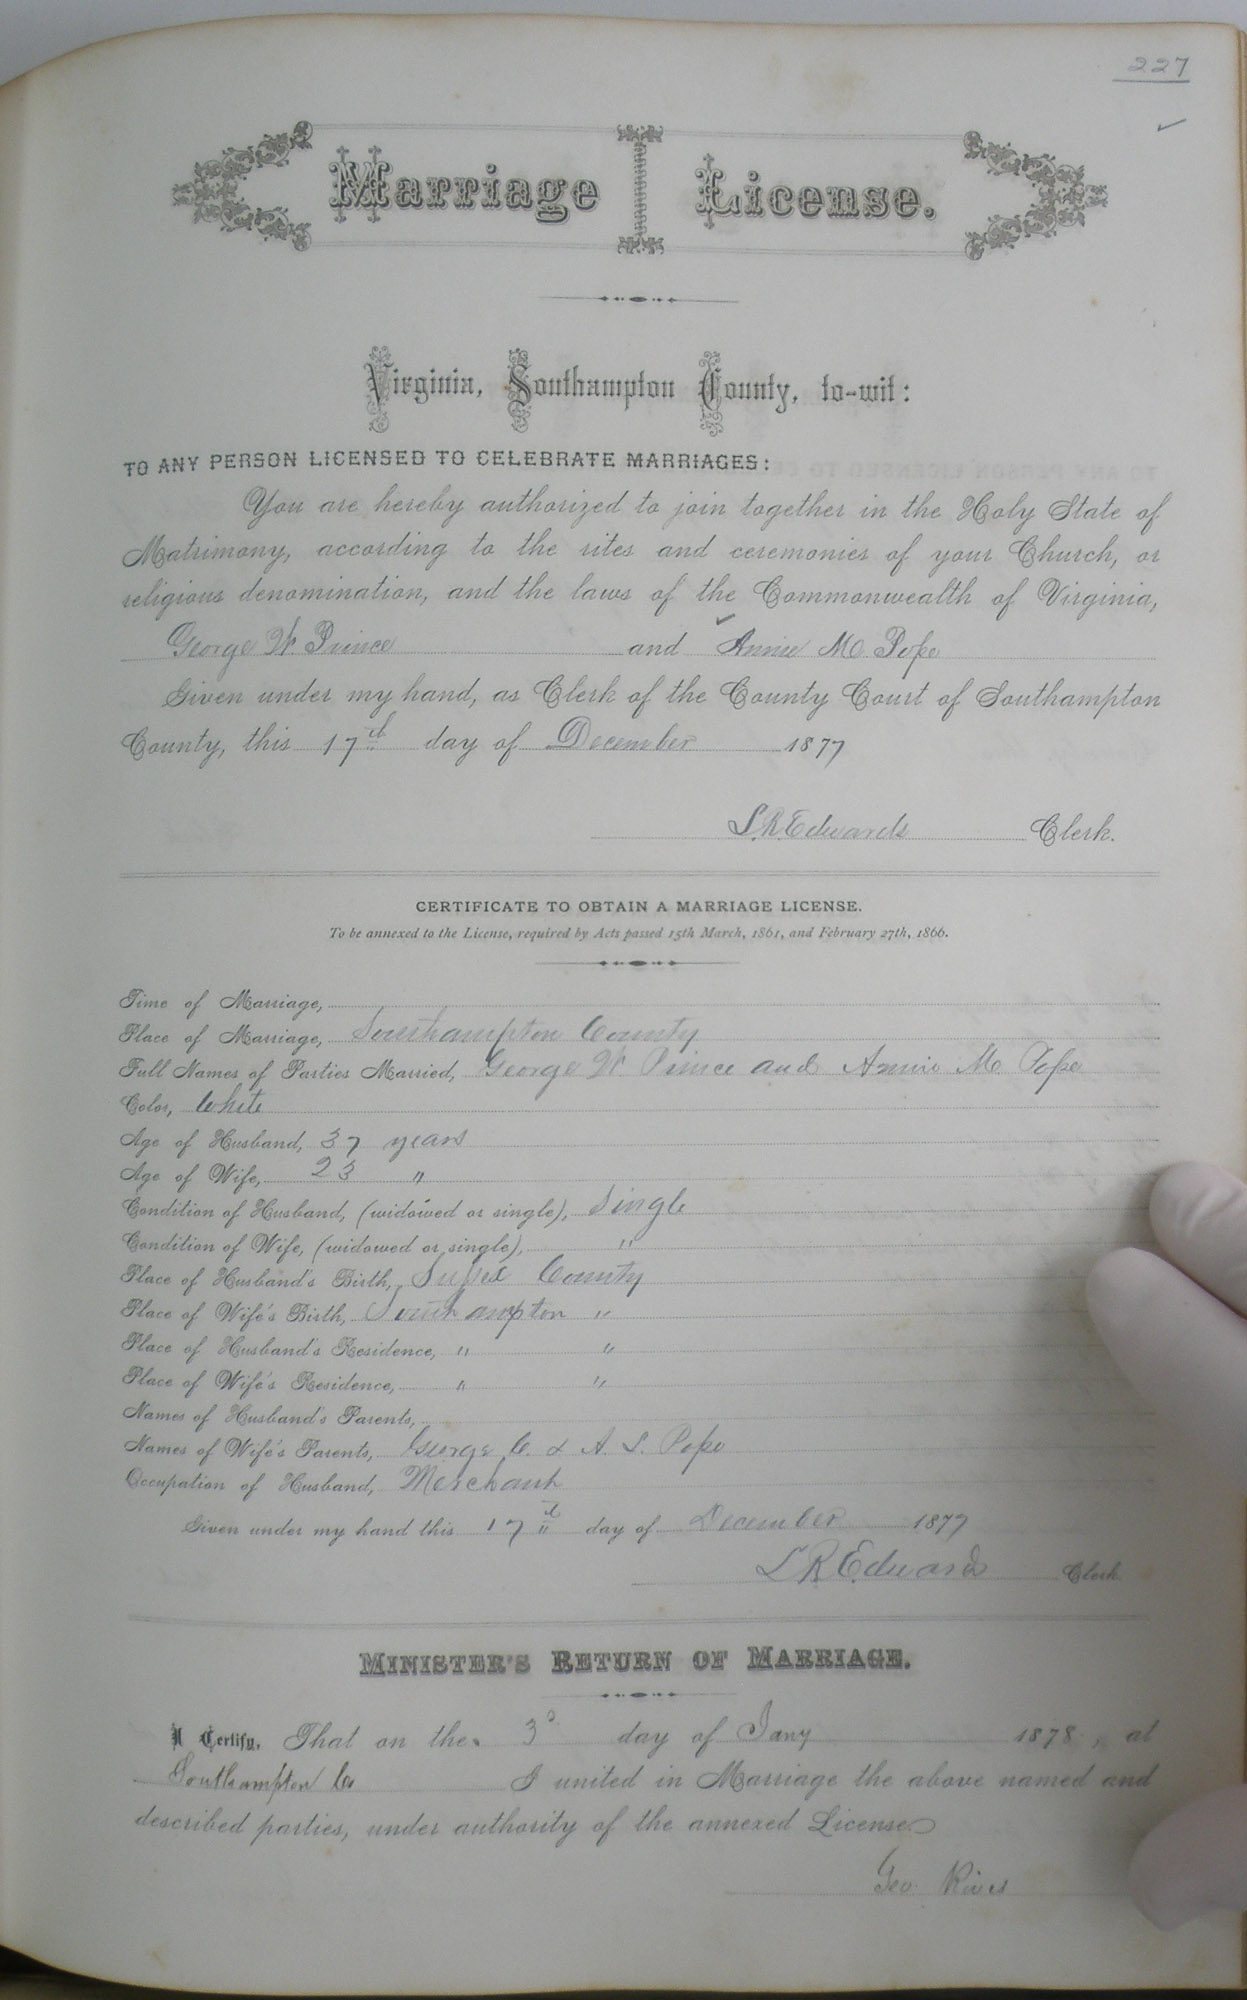 227
Marriage License.
Virginia, Southampton County, to-wit:
TO ANY PERSON LICENSED TO CELEBRATE MARRIAGES:
You are hereby authorized to join together in the Holy State of
Matrimony, according to the rites and ceremonies of your Church, or
religious denomination, and the laws of the Commonwealth of Virginia,
George W Prince and Annie M. Pope
Given under my hand, as Clerk of the County Court of Southampton
County, this 17th day of December 1877
L.R. Edwards Clerk.
CERTIFICATE TO OBTAIN A MARRIAGE LICENSE.
To be annexed to the License, required by Acts passed 15th March, 1861, and February 27th, 1866.
Time of Marriage,
Place of Marriage, Southampton County
Full Names of Parties Married, George W Prince and Annie M. Pope
Color, White
Age of Husband, 37 years
Age of Wife, 23 "
Condition of Husband, (widowed or single), Single
Condition of Wife, (widowed or single), "
Place of Husband's Birth, Sussex County
Place of Wife's Birth, Southampton "
Place of Husband's Residence, " "
Place of Wife's Residence, " "
Names of Husband's Parents,
Names of Wife's Parents, George C. & A. S. Pope
Occupation of Husband, Merchant
Given under my hand this 17th day of December 1877
L.R. Edwards Clerk
MINISTER'S RETURN OF MARRIAGE.
I Certify, That on the 3d day of Jany 1878, at
Southampton Co I united in Marriage the above named and
described parties, under authority of the annexed License.
Geo. Rives